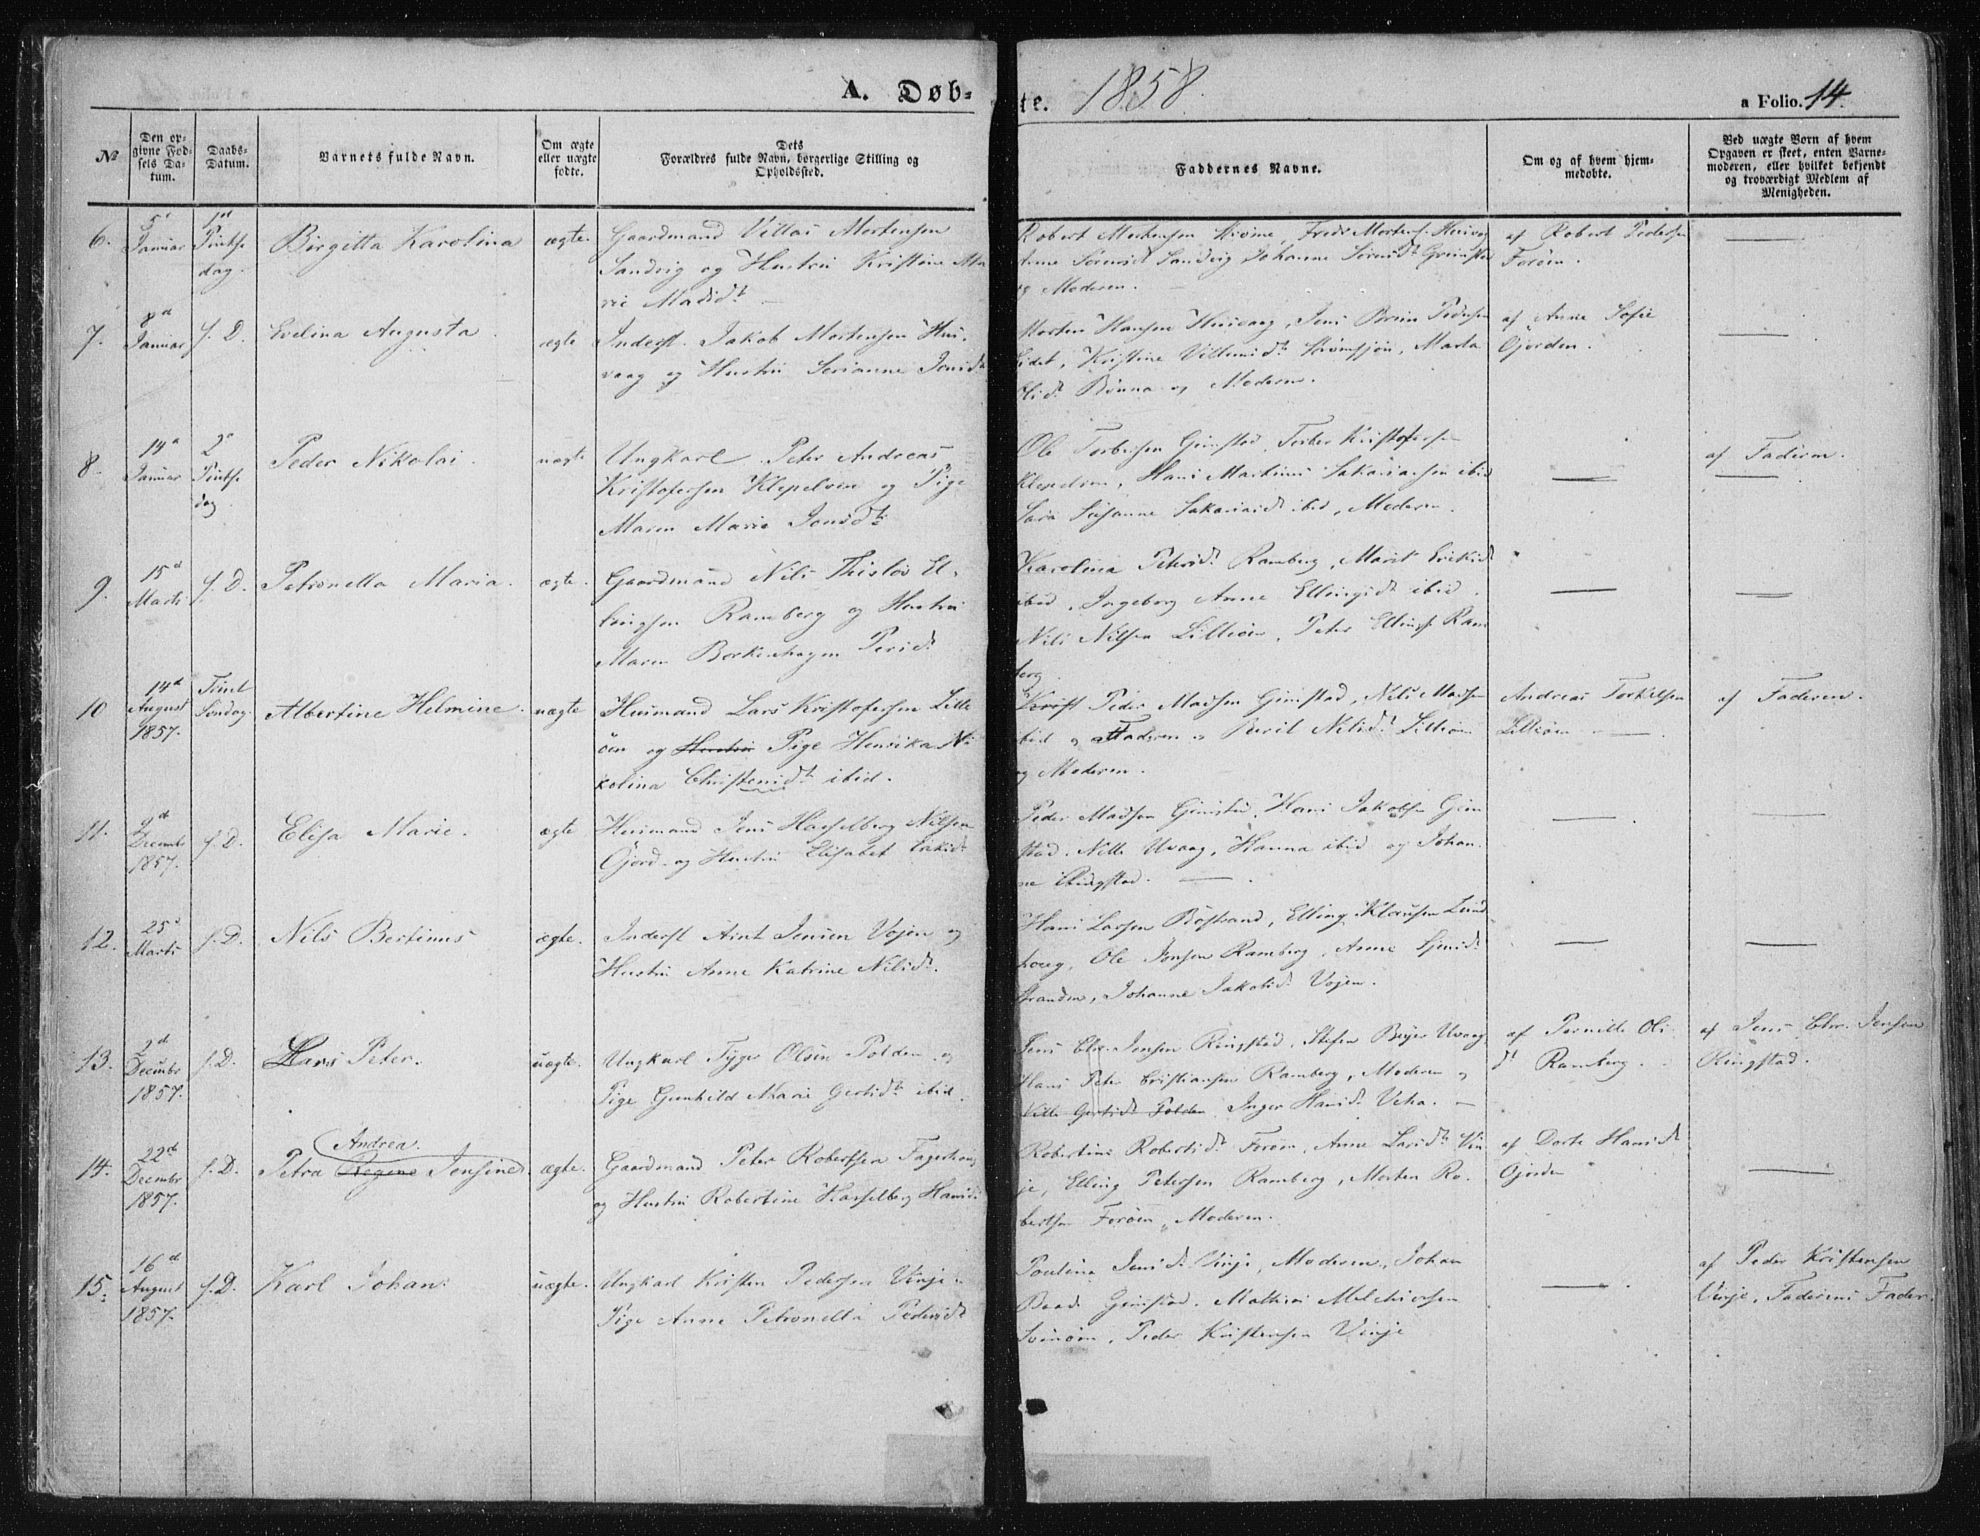 A. Døb-
te. 1858.
a Folio. 14.
No
Den opgivne Fødsels Datum.
Daabs-Datum.
Barnets fulde Navn.
Om ægte eller uægte fødte.
Dets Forældres fulde Navn, borgerlige Stilling og Opholdssted.
Faddernes Navne.
Om og af hvem hjemmedøbte.
Ved uægte Børn af hvem Opgaven er skeet, enten Barnemoderen, eller hvilket bekjendt og troværdigt Medlem af Menigheden.
6. 5' Januar 1st Pintse dag. Birgitta Karolina ægte.
Gaardmand Villas Mortensen
Sandvig og Hustru Kristine Ma
rie Madsdt.
Robert Mortensen
Anne Sørensdt Sandvig Johanne Sørensdt Grimstad
og Moderen.
af Robert Pedersen
Forøen.
7. 8d Januar f. D. Evelina Augusta. ægte
Inderst. Jakob Mortensen Hus-
vaag og Hustru Serianne Jensdt
Morten Hansen Husvaag, Jens Bruun Pedersen
Eidet, Kristine Villumsdt Strømsjøn, Marta
Olsdt Rønna og Moderen.
af Anne Sofie
Gjerden.
8. 14d Januar 2d Pintse dag Peder Nikolai. uægte
Ungkarl Peter Andreas
Kristofersen Klepelven og Pige
Maren Marie Jonsdt.
Ole Torbersen Grimstad, Torber Kristofersen
Klepelven, Hans Martinus Sakariassen ibid
Sara Susanne Sakariasdt ibid, Moderen.
af Faderen.
9. 15d Marts f. D. Petronella Maria. ægte.
Gaardmand Nils Thisløv El-
lingsen Ramberg og Hustru
Maren Borkenhagen Persdt
Karolina Petersdt Ramberg, Marit Eriksdt
ibid, Ingeborg Anne Ellingsdt ibid.
Nils Nilsen Lilleøen, Peter Ellings. Ram
berg.
10 14d August 1857. Trint Søndag. Albertine Helmine. uægte
Husmand Lars Kristofersen Lille
øen og Hustru Pige Henrika Ni
kolina Christensdt ibid.
Peder Madsen Grimstad, Nils Madsen
ibid og Faderen, Beril Nilsdt Lilleøen
og Moderen.
Andreas Torkelsen
Lilleøen
af Faderen.
11. Decembr 1857. f. D. Elisa Marie. ægte
Husmand Jens Hasselberg Nilsen
Gjerd. og Hustru Elisabet
Peder Madsen Grimstad, Hans Jakobsen Grim
stad, Nille Uvaag, Hanna ibid og Johan-
ne Ringstad.
12. 25d Marts f. D. Nils Bertinus ægte.
Inderst Aint Jensen Vojen og
Hustru Anne Katrine Nilsdt.
Hans Larsen Bøstrand, Elling Klausen Lund
hoeg, Ole Jonsen Ramberg, Anne
Stranden, Johanne Jakobsdt Vojen.
13. 2d Decembr 1857. f. D. Lars Peter. uægte.
Ungkarl Tyger Olsen Polden og
Pige Gunhild Marie Gertsdt ibid.
Jens Chr. Jensen Ringstad, Stefen Beyer Uvaag
Hans Peter Cristiansen Ramberg, Moderen og
Nille Gertsdt Polden, Inger Hansdt Veha.
af Pernille Ols
dt Ramberg.
af Jens Chr. Jensen
Ringstad.
14. 22d Decembr 1857. f. D. Andrea. Petra Regene Jensine ægte.
Gaardmand Peter Robertsen
og Hustru Robertine Hasselberg Hansdt
Robertine Robertsdt Forøen, Anne Larsdt Vin
je, Elling Petersen Ramberg, Morten Ro-
bertsen Forøen, Moderen.
af Dorte Hansdt
Gjerden
15. 16d August 1857. f. D. Karl Johan. uægte.
Ungkarl Kristen Pedersen Vinje.
Pige Anne Petronella Pedersdt
Poulina Jensdt Vinje, Moderen, Johan
Baad Grimstad. Mathias Melchiorsen
Svinøen, Peder Kristensen Vinje
af Peder Kristensen
Vinje, Faderens Fader.